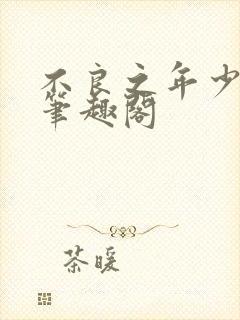 不良之年少
筆趣閣
茶暖